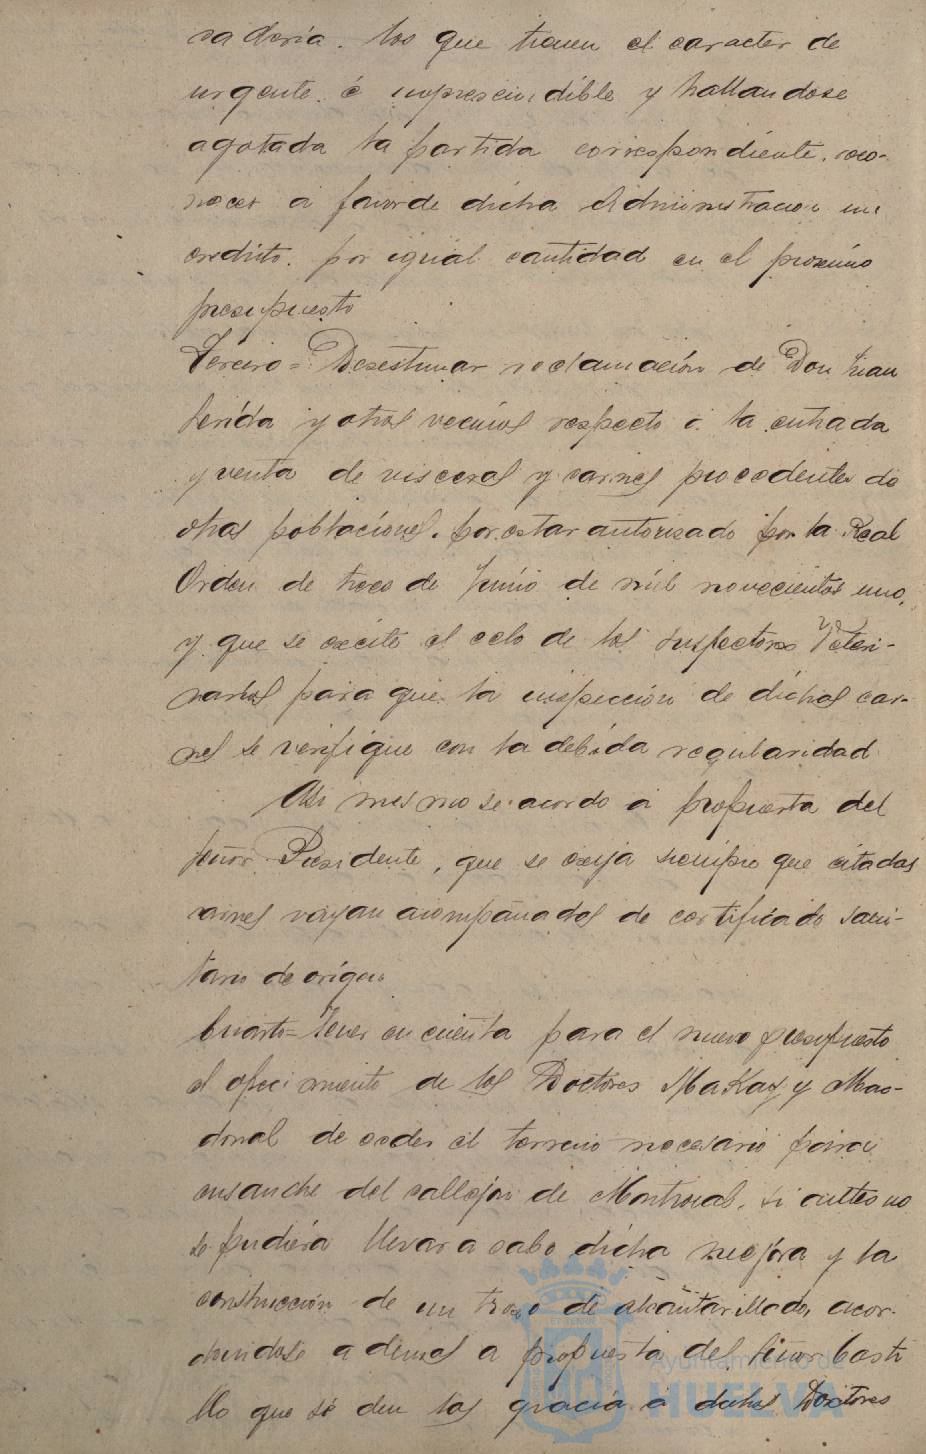 caderia. los que tienen el caracter de
urgente é imprescindible y hallandose
agotada la partida correspondiente, reco-
nocer a favor de dicha Administracion un
credito por igual cantidad en el proximo
presupuesto
Tercero = Desestimar reclamación de Don Juan
Lerida y otros vecinos respecto á la entrada
y venta de visceras y carnes procedentes de
otras poblaciones, por estar autorizado por la Real
Orden de trece de Junio de mil novecientos uno,
y que se excite el celo de los Inspectores Veteri-
narios para que la inspección de dichas car-
nes se verifique con la debida regularidad
Asi mismo se acordo a propuesta del
señor Presidente, que se exija siempre que citadas
carnes vayan acompañadas de certificado sani-
tario de origen
Cuarto = Tener en cuenta para el nuevo presupuesto
el ofrecimiento de los Doctores MaKay y Mac-
donal de ceder el terreno necesario para
ensanche del callejon de Montrocal, si antes no
se pudiera llevar a cabo dicha mejora y la
construcción de un trozo de alcantarillado, acor-
dandose ademas a propuesta del señor Casti
llo que se den las gracias á dichos Doctores
Ayuntamiento de
HUELVA